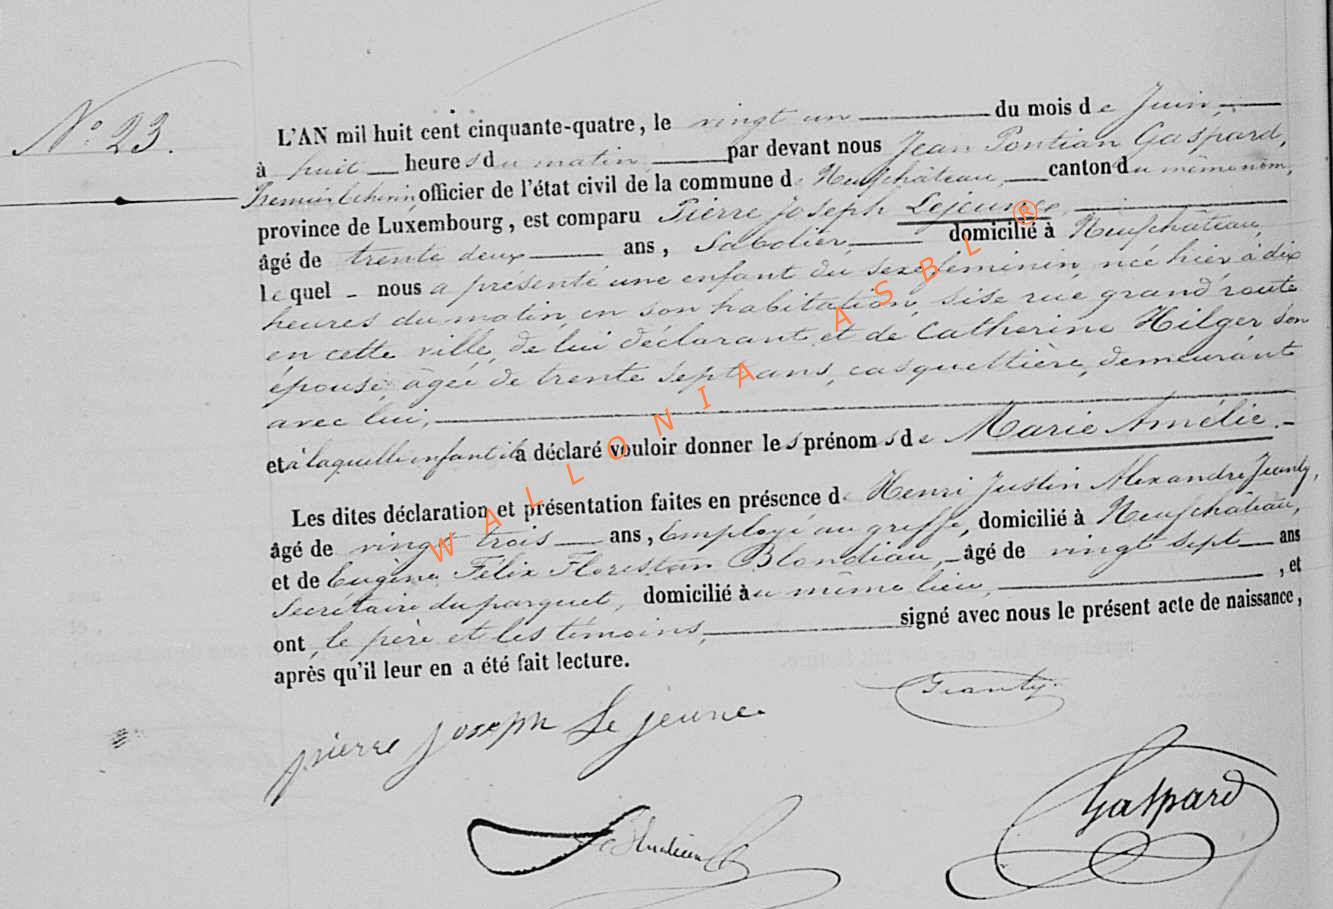 N° 23.
L'AN mil huit cent cinquante-quatre, le vingt un du mois de Juin,
à huit heures du matin, par devant nous Jean Pontian Gaspard,
Premier Echevin, officier de l'état civil de la commune de Neufchâteau, canton du même nom,
province de Luxembourg, est comparu Pierre Joseph Lejeune,
âgé de trente deux ans, Sabotier, domicilié à Neufchâteau
lequel nous a présenté une enfant du sexe féminin née hier à dix
heures du matin, en son habitation, sise rue grand'route
en cette ville, de lui déclarant et de Catherine Hilger son
épouse âgée de trente sept ans, casquettière, demeurant
avec lui,
et à laquelle enfant il a déclaré vouloir donner les prénoms de Marie Amélie.
Les dites déclaration et présentation faites en présence de Henri Justin Alexandre Jeanty,
âgé de vingt trois ans, Employé au greffe, domicilié à Neufchâteau,
et de Eugène Félix Florestan Blondiau, âgé de vingt sept ans
Secrétaire du parquet, domicilié au même lieu, , et
ont, le père et les témoins, signé avec nous le présent acte de naissance,
après qu'il leur en a été fait lecture.
Jeanty.
pierre joseph Le jeune
Gaspard
WALLONIA ASBL ®